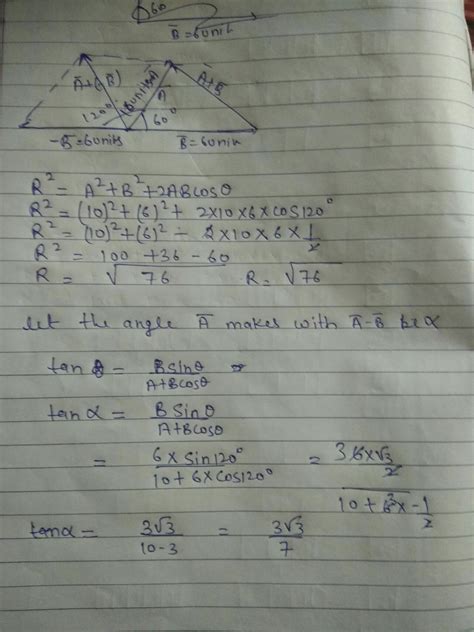 60
B̅ = 6 unit
A̅+(-B̅)
A̅
A̅+B̅
120°
60°
-B̅ = 6 units
B̅ = 6 unit
R² = A² + B² + 2AB cosθ
R² = (10)² + (6)² + 2×10×6×cos120°
R² = (10)² + (6)² - 2×10×6×1/2
R² = 100 + 36 - 60
R = √76 R = √76
let the angle A̅ makes with A̅-B̅ be α
tan θ = B sinθ / A+B cosθ
tan α = B Sinθ / A+B cosθ
= 6×sin120° / 10+6×cos120° = 3 6×√3/2 / 10+6³×-1/2
tanα = 3√3 / 10-3 = 3√3 / 7